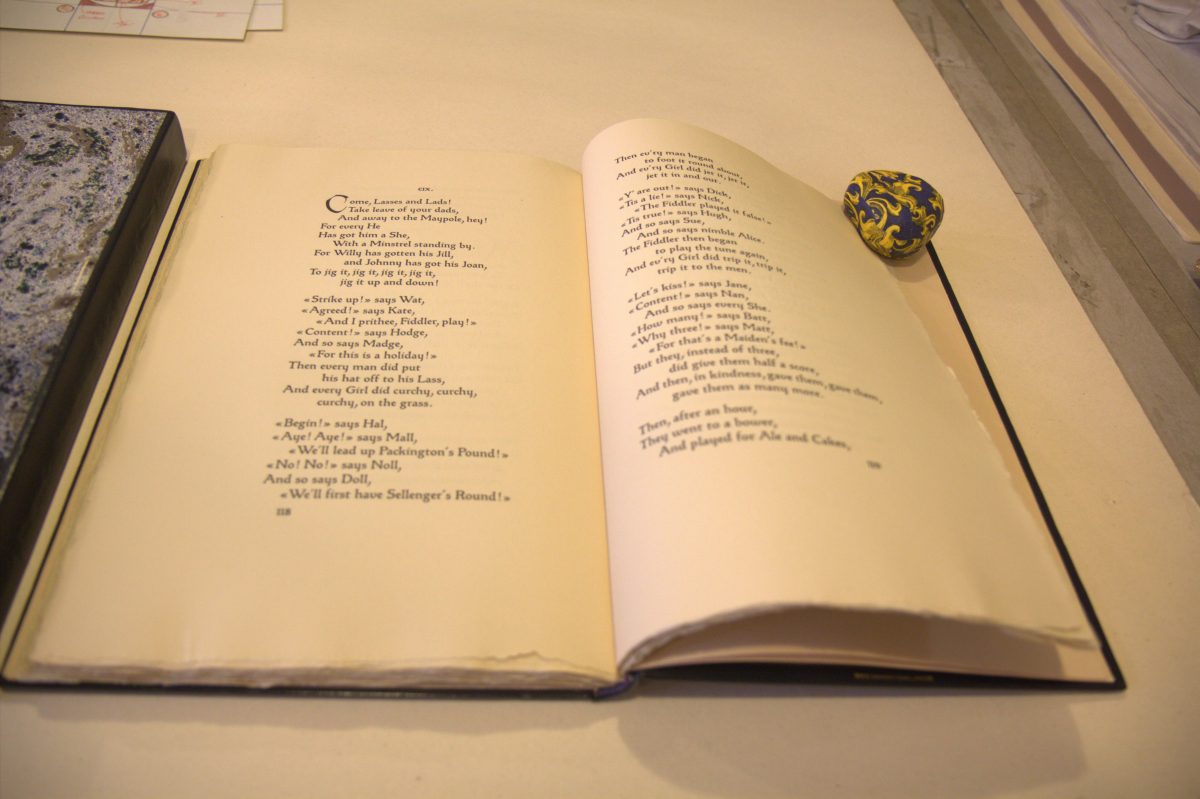 CIX.
Come, Lasses and Lads!
Take leave of your dads,
And away to the Maypole, hey!
For every He
Has got him a She,
With a Minstrel standing by.
For Willy has gotten his Jill,
and Johnny has got his Joan,
To jig it, jig it, jig it, jig it,
jig it up and down!
«Strike up!» says Wat,
«Agreed!» says Kate,
«And I prithee, Fiddler, play!»
«Content!» says Hodge,
And so says Madge,
«For this is a holiday!»
Then every man did put
his hat off to his Lass,
And every Girl did curchy, curchy,
curchy, on the grass.
«Begin!» says Hal,
«Aye! Aye!» says Mall,
«We'll lead up Packington's Pound!»
«No! No!» says Noll,
And so says Doll,
«We'll first have Sellenger's Round!»
118
Then ev'ry man began
to foot it round about,
And ev'ry Girl did jet it, jet it,
jet it in and out.
«Y' are out!» says Dick,
«'Tis a lie!» says Nick,
«The Fiddler played it false!»
«'Tis true!» says Hugh,
And so says Sue,
And so says nimble Alice.
The Fiddler then began
to play the tune again,
And ev'ry Girl did trip it, trip it,
trip it to the men.
«Let's kiss!» says Jane,
«Content!» says Nan,
And so says every She.
«How many!» says Batt,
«Why three!» says Matt,
«For that's a Maiden's fee!»
But they, instead of three,
did give them half a score,
And then, in kindness, gave them, gave them,
gave them as many more.
Then, after an hour,
They went to a bower,
And played for Ale and Cakes,
119